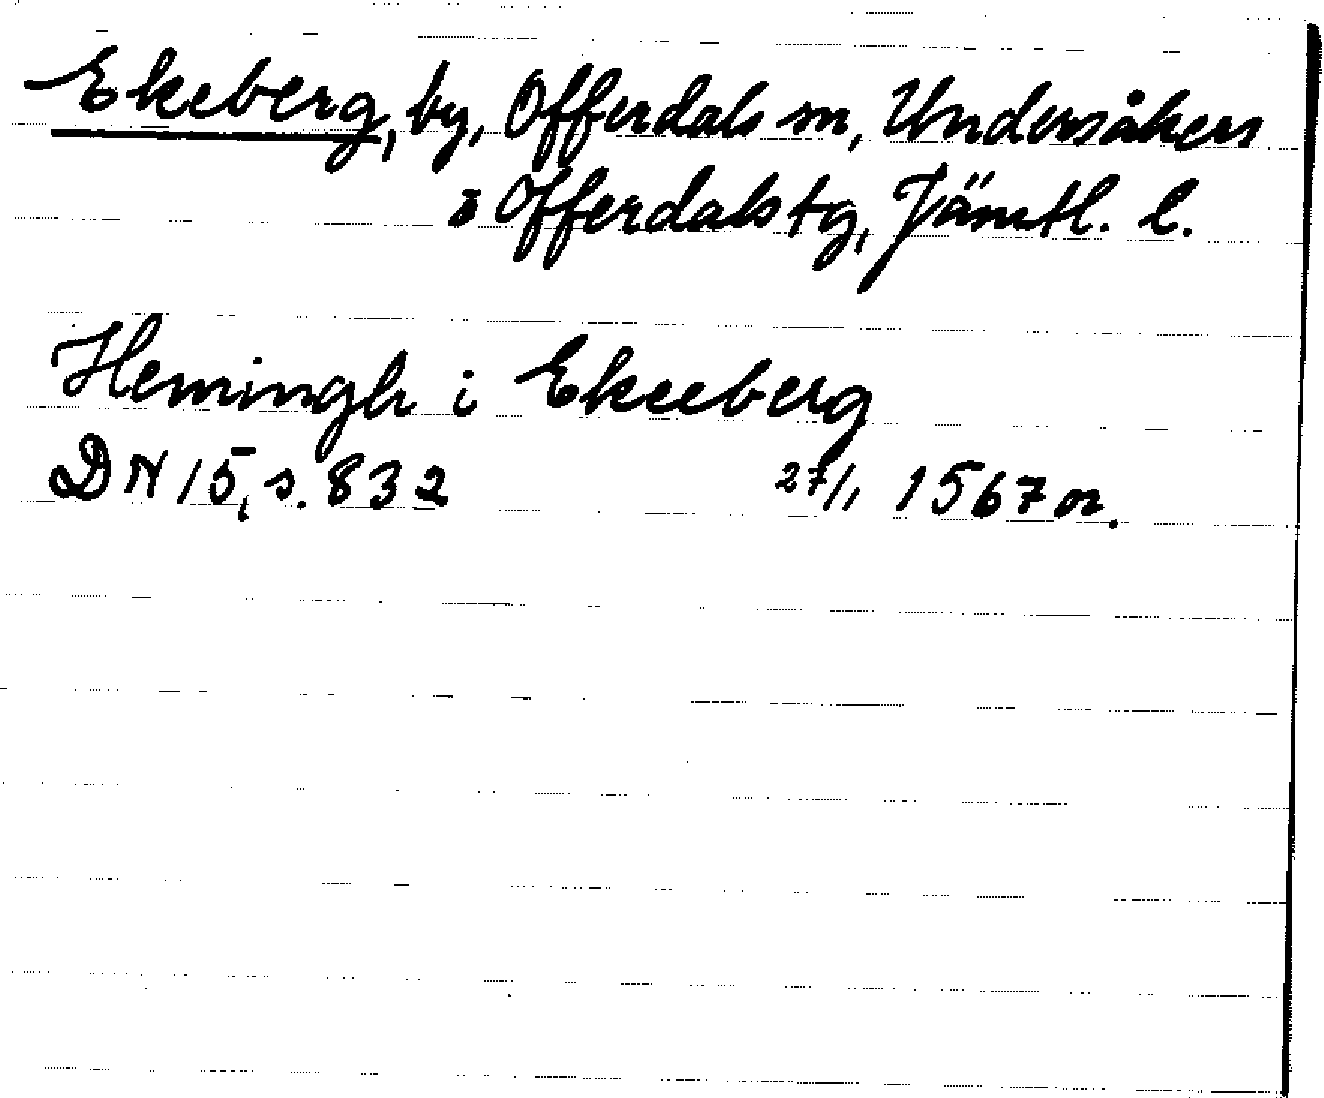 Ekeberg, by, Offerdals sn, Undersåkers
o Offerdals tg, Jämtl. l.
Hemingh i Ekeeberg
DN 15, s. 832 27/1 1567 or.